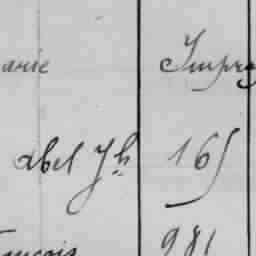 arie Impr
abel Jh 165
ançois 981